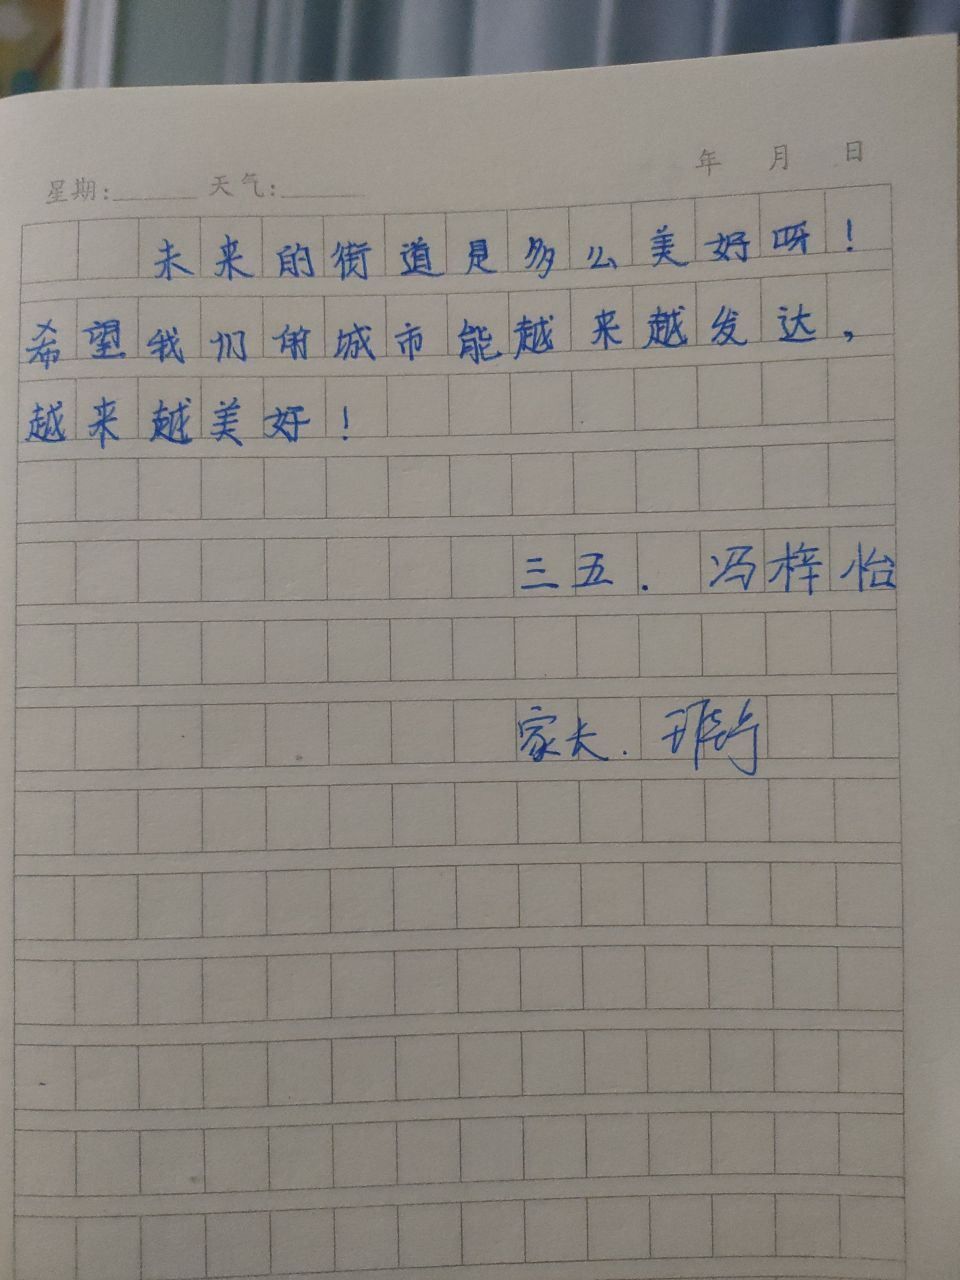 年 月 日
星期:______ 天气:______
未来的街道是多么美好呀！
希望我们的城市能越来越发达，
越来越美好！
三五. 冯梓怡
家长.